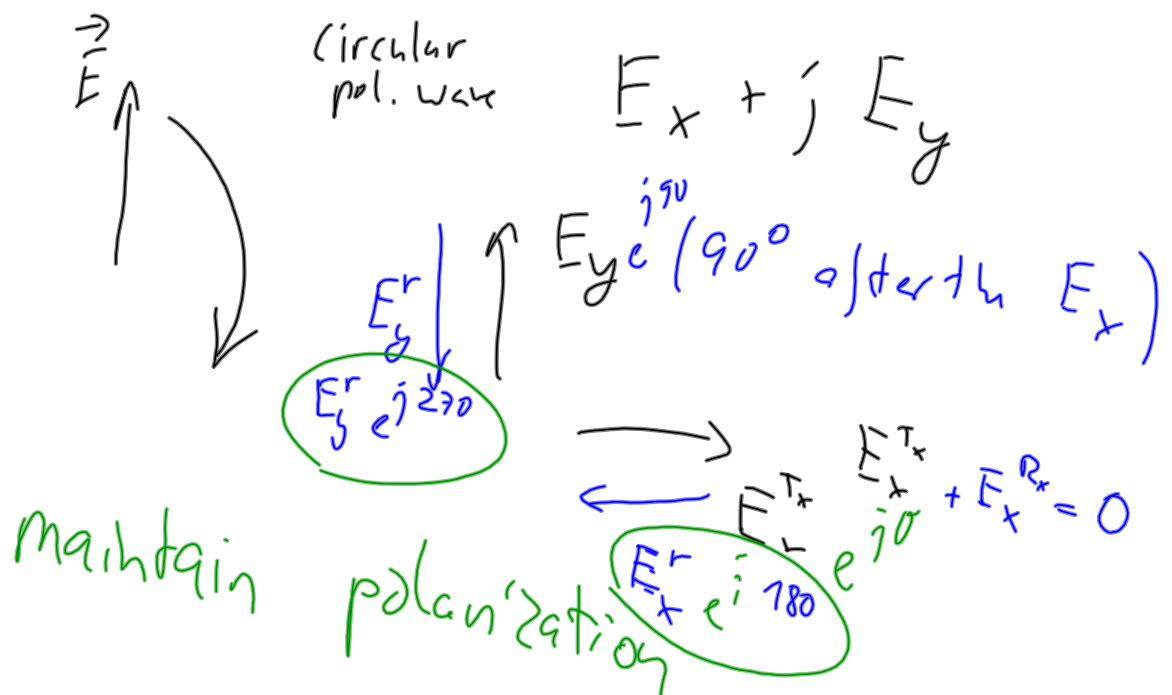 E⃗
Circular
pol. wave
E_x + j E_y
E_y e^{j90} (90° after the E_x)
E_y^r
E_y^r e^{j270}
E_x^{Tx} + E_x^{Rx} = 0
E_x^{Tx} e^{j0}
E_x^r e^{j180}
maintain polarization